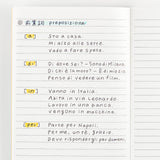 前置詞 preposizione
(a) Sto a casa.
Mi alzo alle sette.
Vado a fare spese.
(di) Di dove sei? - Sono di Milano.
Di chi è la moto? - È di Mario.
Penso di vedere un film.
(in) Vanno in Italia.
Abita in via Leonardo.
Lavoro in una banca.
Vengono in macchina.
(per) Parte per Napoli.
Per me, un tè, grazie.
Devo risparmiare per domani.